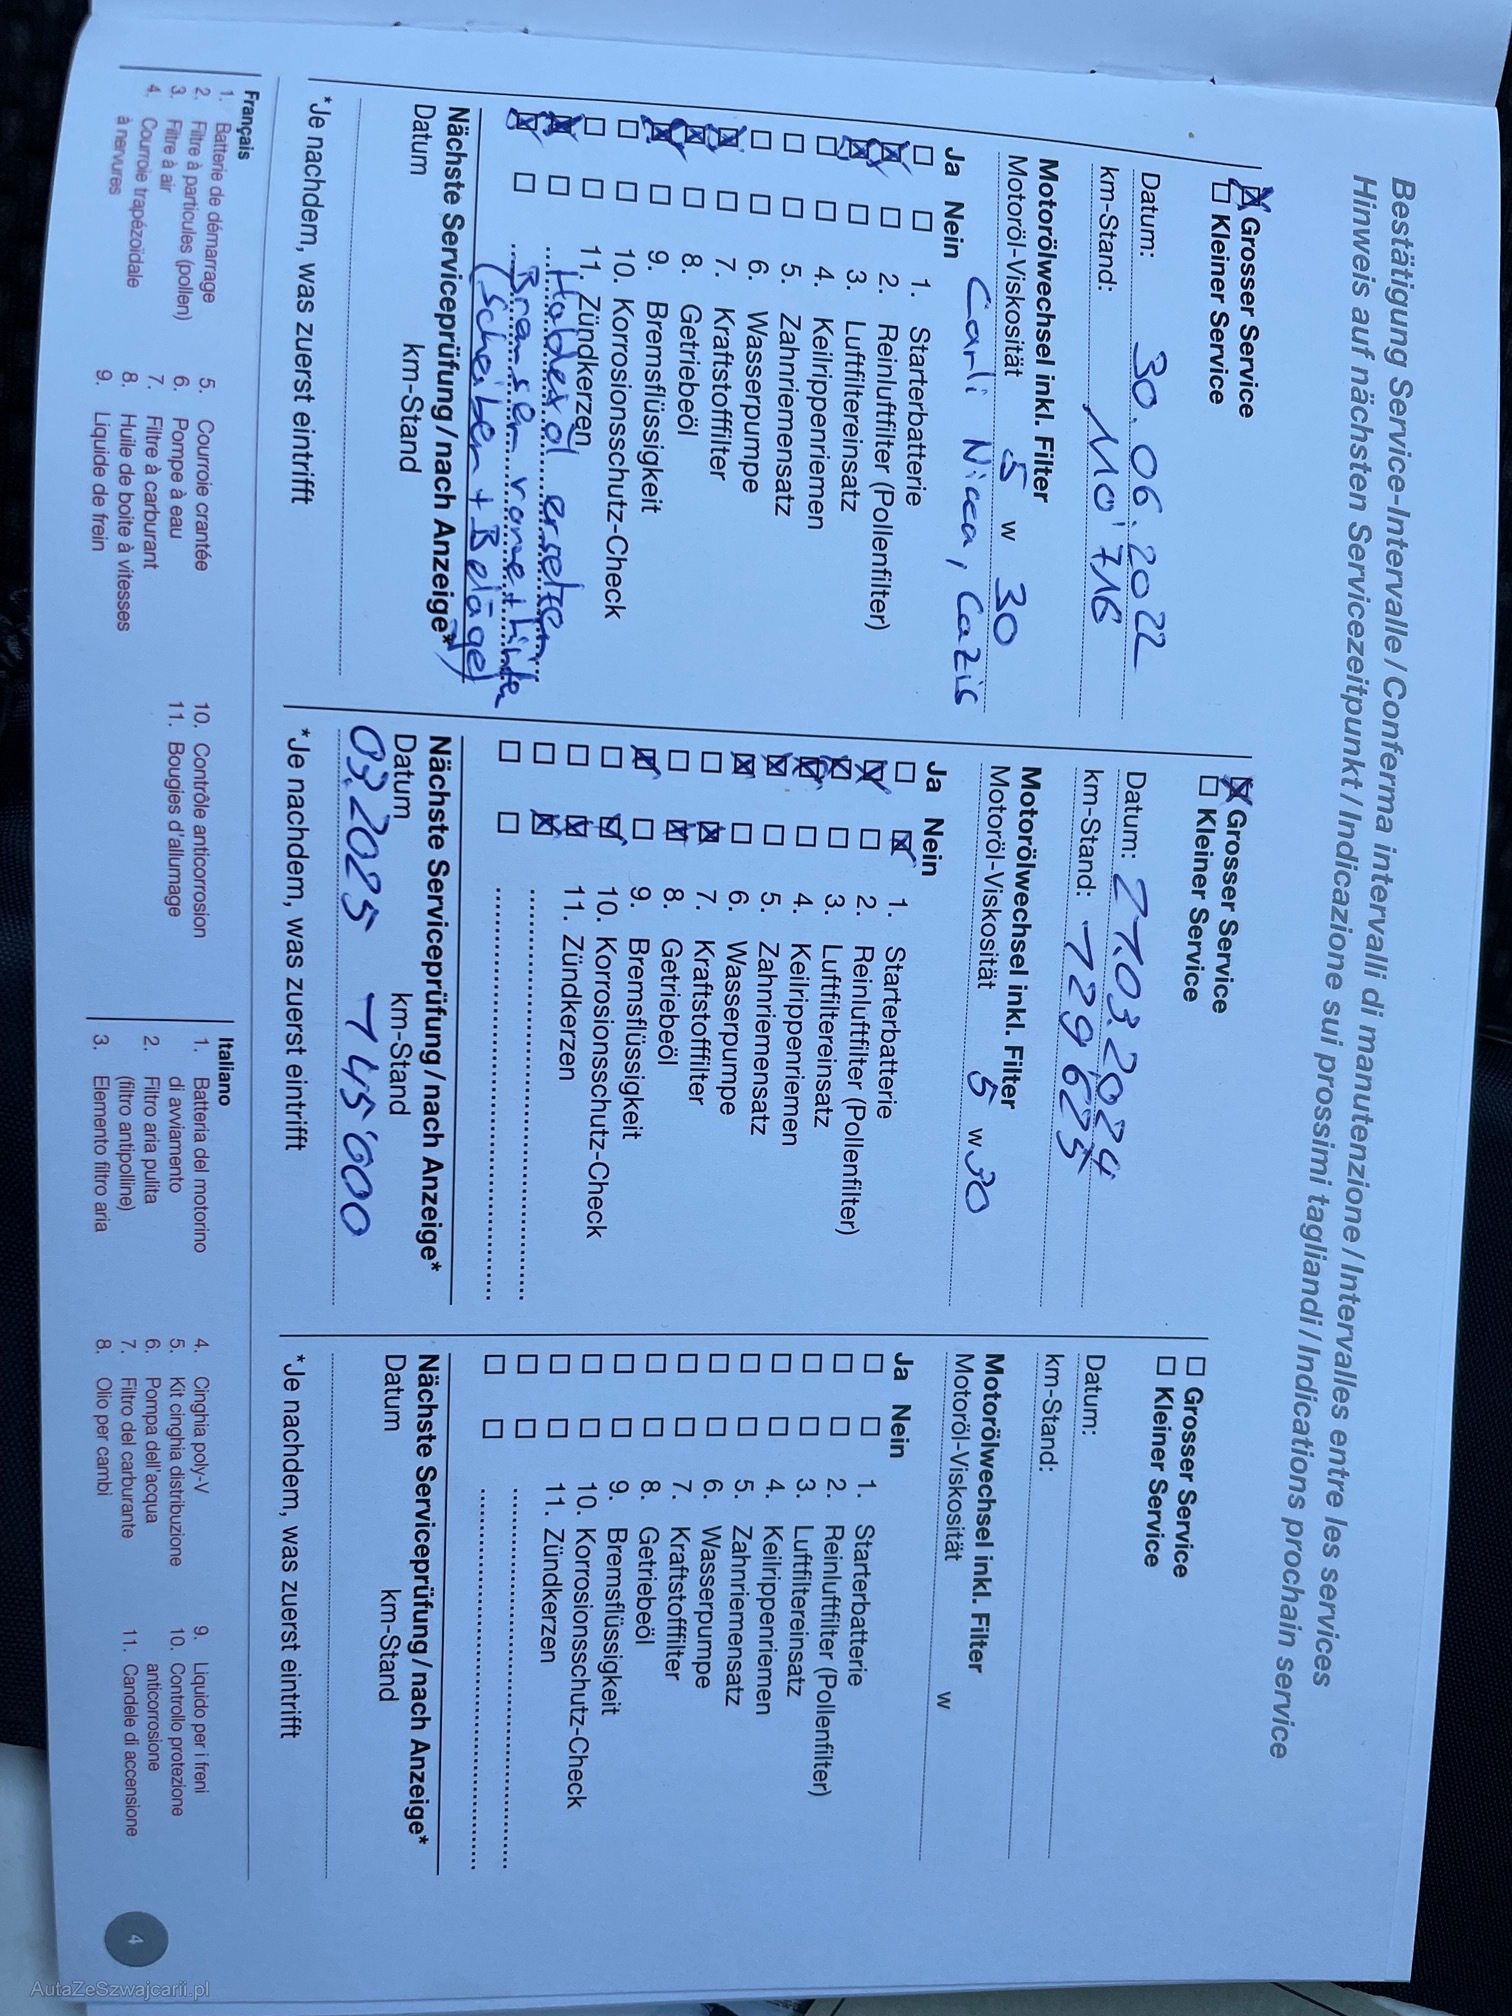 Bestätigung Service-Intervalle / Conferma intervalli di manutenzione / Intervalles entre les services
Hinweis auf nächsten Servicezeitpunkt / Indicazione sui prossimi tagliandi / Indications prochain service
Grosser Service
Kleiner Service
Datum: 30.06.2022
km-Stand: 110'716
Motorölwechsel inkl. Filter
Motoröl-Viskosität 5 w 30
Carli Nicca, Cazis
Ja Nein
1. Starterbatterie
2. Reinluftfilter (Pollenfilter)
3. Luftfiltereinsatz
4. Keilrippenriemen
5. Zahnriemensatz
6. Wasserpumpe
7. Kraftstofffilter
8. Getriebeöl
9. Bremsflüssigkeit
10. Korrosionsschutz-Check
11. Zündkerzen
Haldexöl ersetzen
Bremsen vorne + hinten
(Scheiben + Beläge)
Nächste Serviceprüfung / nach Anzeige*
Datum km-Stand
*Je nachdem, was zuerst eintrifft
Grosser Service
Kleiner Service
Datum: 27.03.2024
km-Stand: 129625
Motorölwechsel inkl. Filter
Motoröl-Viskosität 5 w 30
Ja Nein
1. Starterbatterie
2. Reinluftfilter (Pollenfilter)
3. Luftfiltereinsatz
4. Keilrippenriemen
5. Zahnriemensatz
6. Wasserpumpe
7. Kraftstofffilter
8. Getriebeöl
9. Bremsflüssigkeit
10. Korrosionsschutz-Check
11. Zündkerzen
Nächste Serviceprüfung / nach Anzeige*
Datum km-Stand
03.2025 145'000
*Je nachdem, was zuerst eintrifft
Grosser Service
Kleiner Service
Datum:
km-Stand:
Motorölwechsel inkl. Filter
Motoröl-Viskosität w
Ja Nein
1. Starterbatterie
2. Reinluftfilter (Pollenfilter)
3. Luftfiltereinsatz
4. Keilrippenriemen
5. Zahnriemensatz
6. Wasserpumpe
7. Kraftstofffilter
8. Getriebeöl
9. Bremsflüssigkeit
10. Korrosionsschutz-Check
11. Zündkerzen
Nächste Serviceprüfung / nach Anzeige*
Datum km-Stand
*Je nachdem, was zuerst eintrifft
Français
1. Batterie de démarrage
2. Filtre à particules (pollen)
3. Filtre à air
4. Courroie trapézoïdale
à nervures
5. Courroie crantée
6. Pompe à eau
7. Filtre à carburant
8. Huile de boite à vitesses
9. Liquide de frein
10. Contrôle anticorrosion
11. Bougies d'allumage
Italiano
1. Batteria del motorino
di avviamento
2. Filtro aria pulita
(filtro antipolline)
3. Elemento filtro aria
4. Cinghia poly-V
5. Kit cinghia distribuzione
6. Pompa dell'acqua
7. Filtro del carburante
8. Olio per cambi
9. Liquido per i freni
10. Controllo protezione
anticorrosione
11. Candele di accensione
4
AutaZeSzwajcarii.pl